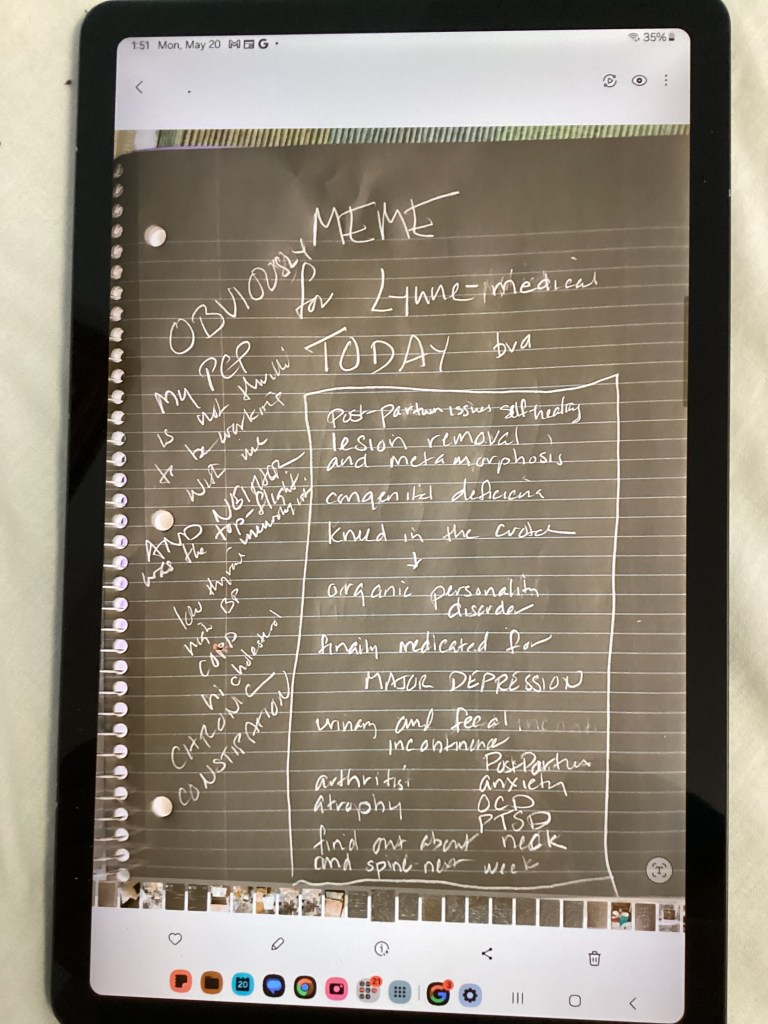 1:51 Mon, May 20
35%
MEME
for Lynne-medical
TODAY bva
Post-partum issues self healing
lesion removal,
and metamorphosis
congenital
in the
organic personality
disorder
finally medicated for
MAJOR DEPRESSION
urinary and fecal
incontinence
Post Partum
arthritis
anxiety
atrophy
OCD
PTSD
find out about neck
and spine next week
OBVIOUSLY
My PCP
is not
to be working
with me
AND
was the top-flight
low
high BP
COPD
hi cholesterol
CHRONIC
CONSTIPATION
20